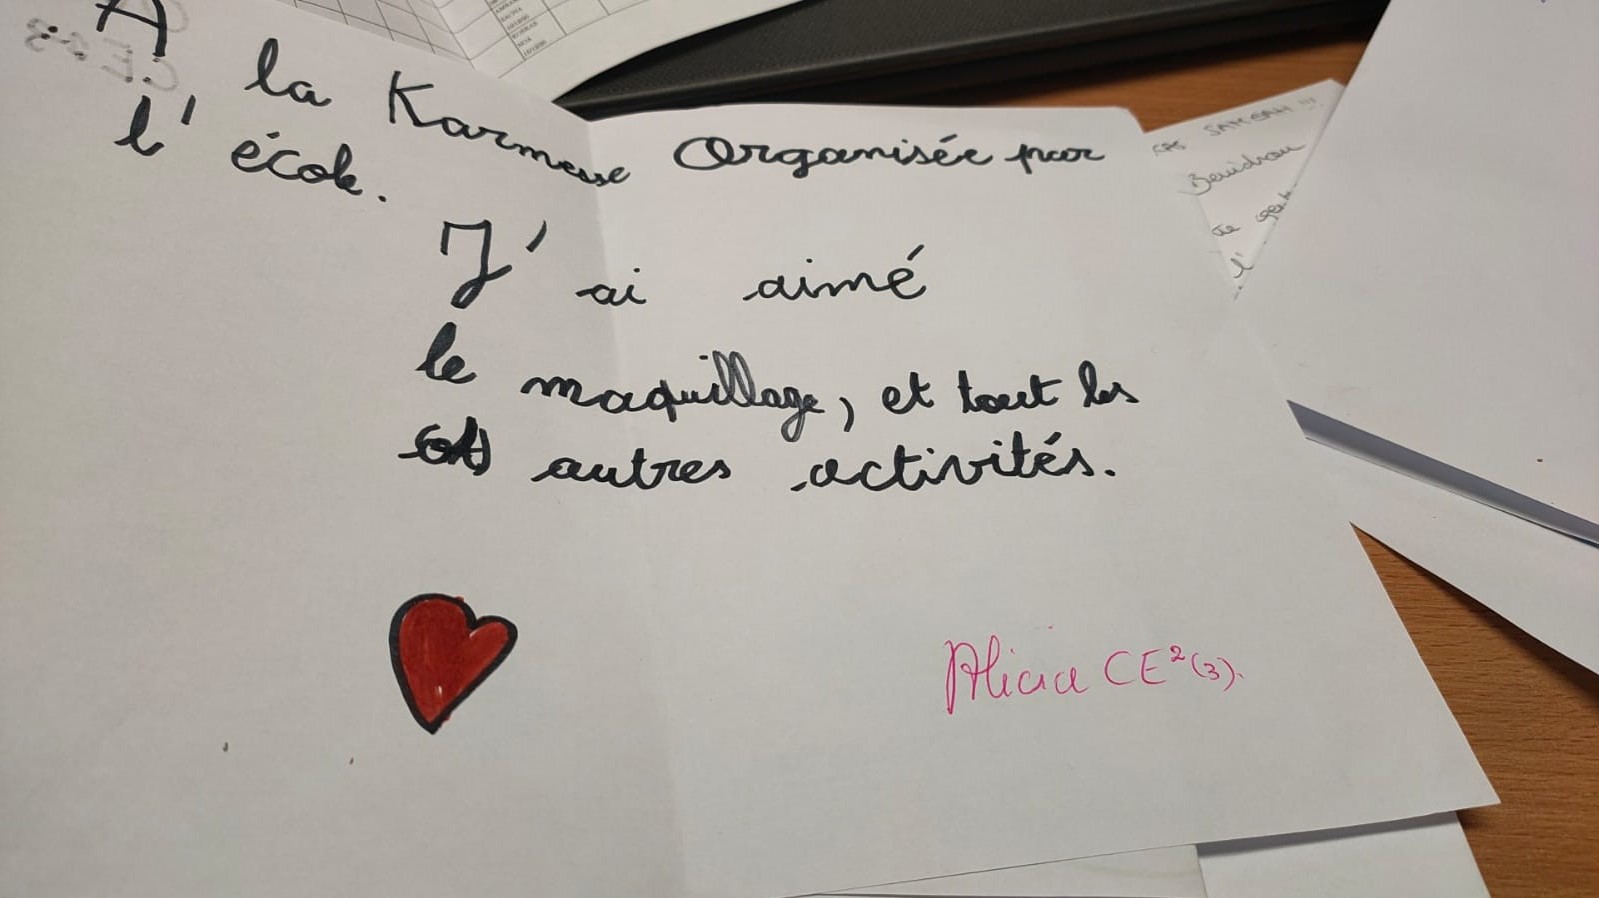 A la Karmesse Organisée par
l'école.
J'ai aimé
le maquillage, et tout les
autres activités.
Alicia CE²(3).
SAMEAH !!!